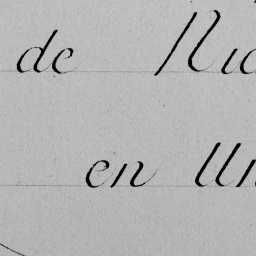 de Nic
en Un